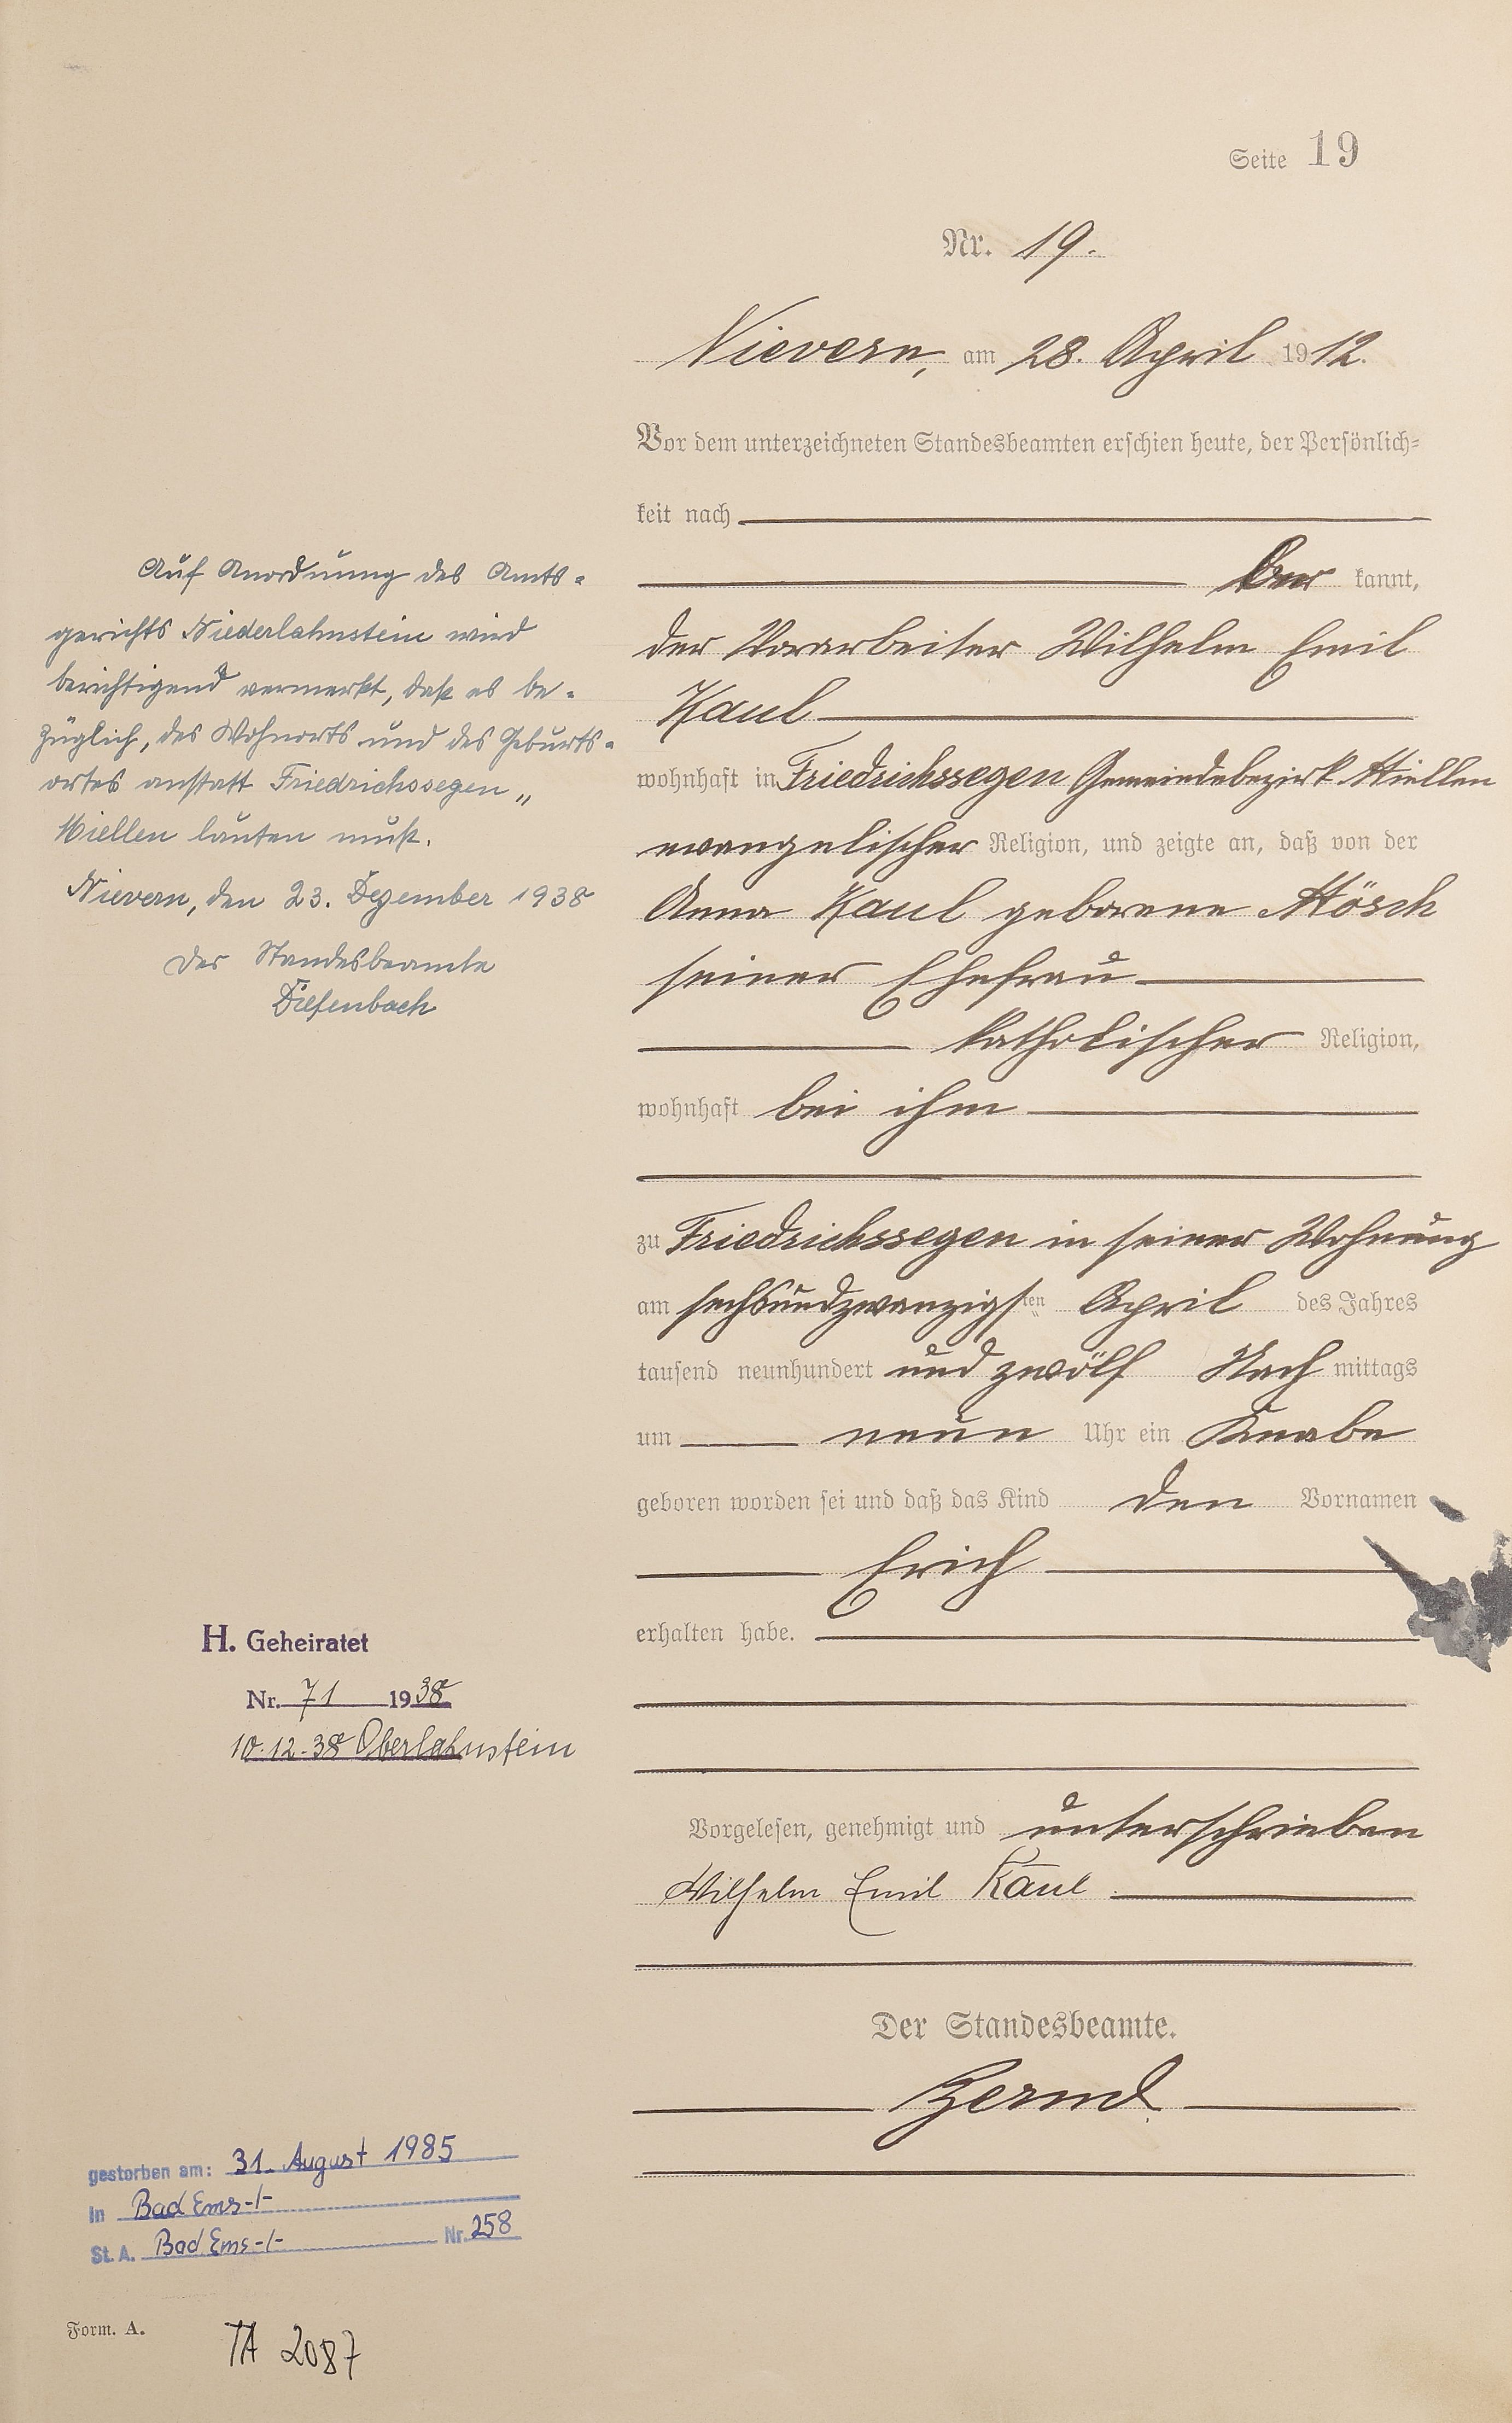 Seite 19
Nr. 19.
Nievern, am 28. April 1912.
Vor dem unterzeichneten Standesbeamten erschien heute, der Persönlich-
keit nach
kannt,
der Vorarbeiter Wilhelm Emil
Kaul
wohnhaft in Friedrichssegen Gemeindebezirk Miellen
evangelischer Religion, und zeigte an, daß von der
Anna Kaul geborene Mösch
seiner Ehefrau
katholischer Religion,
wohnhaft bei ihm
zu Friedrichssegen in seiner Wohnung
am sechsundzwanzigsten April des Jahres
tausend neunhundert und zwölf Nachmittags
um neun Uhr ein Knabe
geboren worden sei und daß das Kind den Vornamen
Erich
erhalten habe.
Vorgelesen, genehmigt und unterschrieben
Wilhelm Emil Kaul
Der Standesbeamte.
Auf Anordnung des Amts-
gerichts Niederlahnstein wird
berichtigend vermerkt, daß es be-
züglich, des Wohnorts und des Geburts-
ortes anstatt Friedrichssegen „
Miellen lauten muß.
Nievern, den 23. Dezember 1938
Der Standesbeamte
Diefenbach
H. Geheiratet
Nr. 71 1938
10.12.38 Oberlahnstein
gestorben am: 31. August 1985
in Bad Ems -/-
St. A. Bad Ems -/- Nr. 258
Form. A.
TA 2087